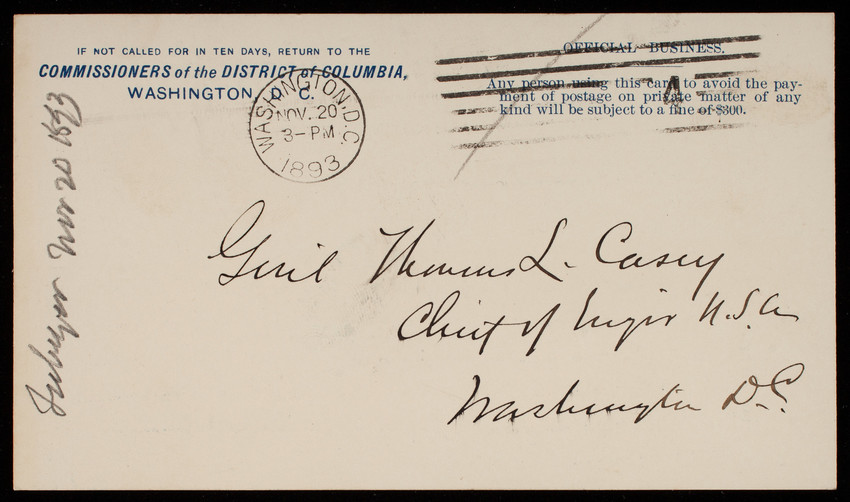 IF NOT CALLED FOR IN TEN DAYS, RETURN TO THE
COMMISSIONERS of the DISTRICT of COLUMBIA,
WASHINGTON, D. C.
WASHINGTON, D.C.
NOV. 20
3-PM
1893
OFFICIAL BUSINESS.
Any person using this card to avoid the pay-
ment of postage on private matter of any
kind will be subject to a fine of $300.
A
Genl Thomas L. Casey
Chief of Engrs U.S.A
Washington D.C.
Nov 20 1893